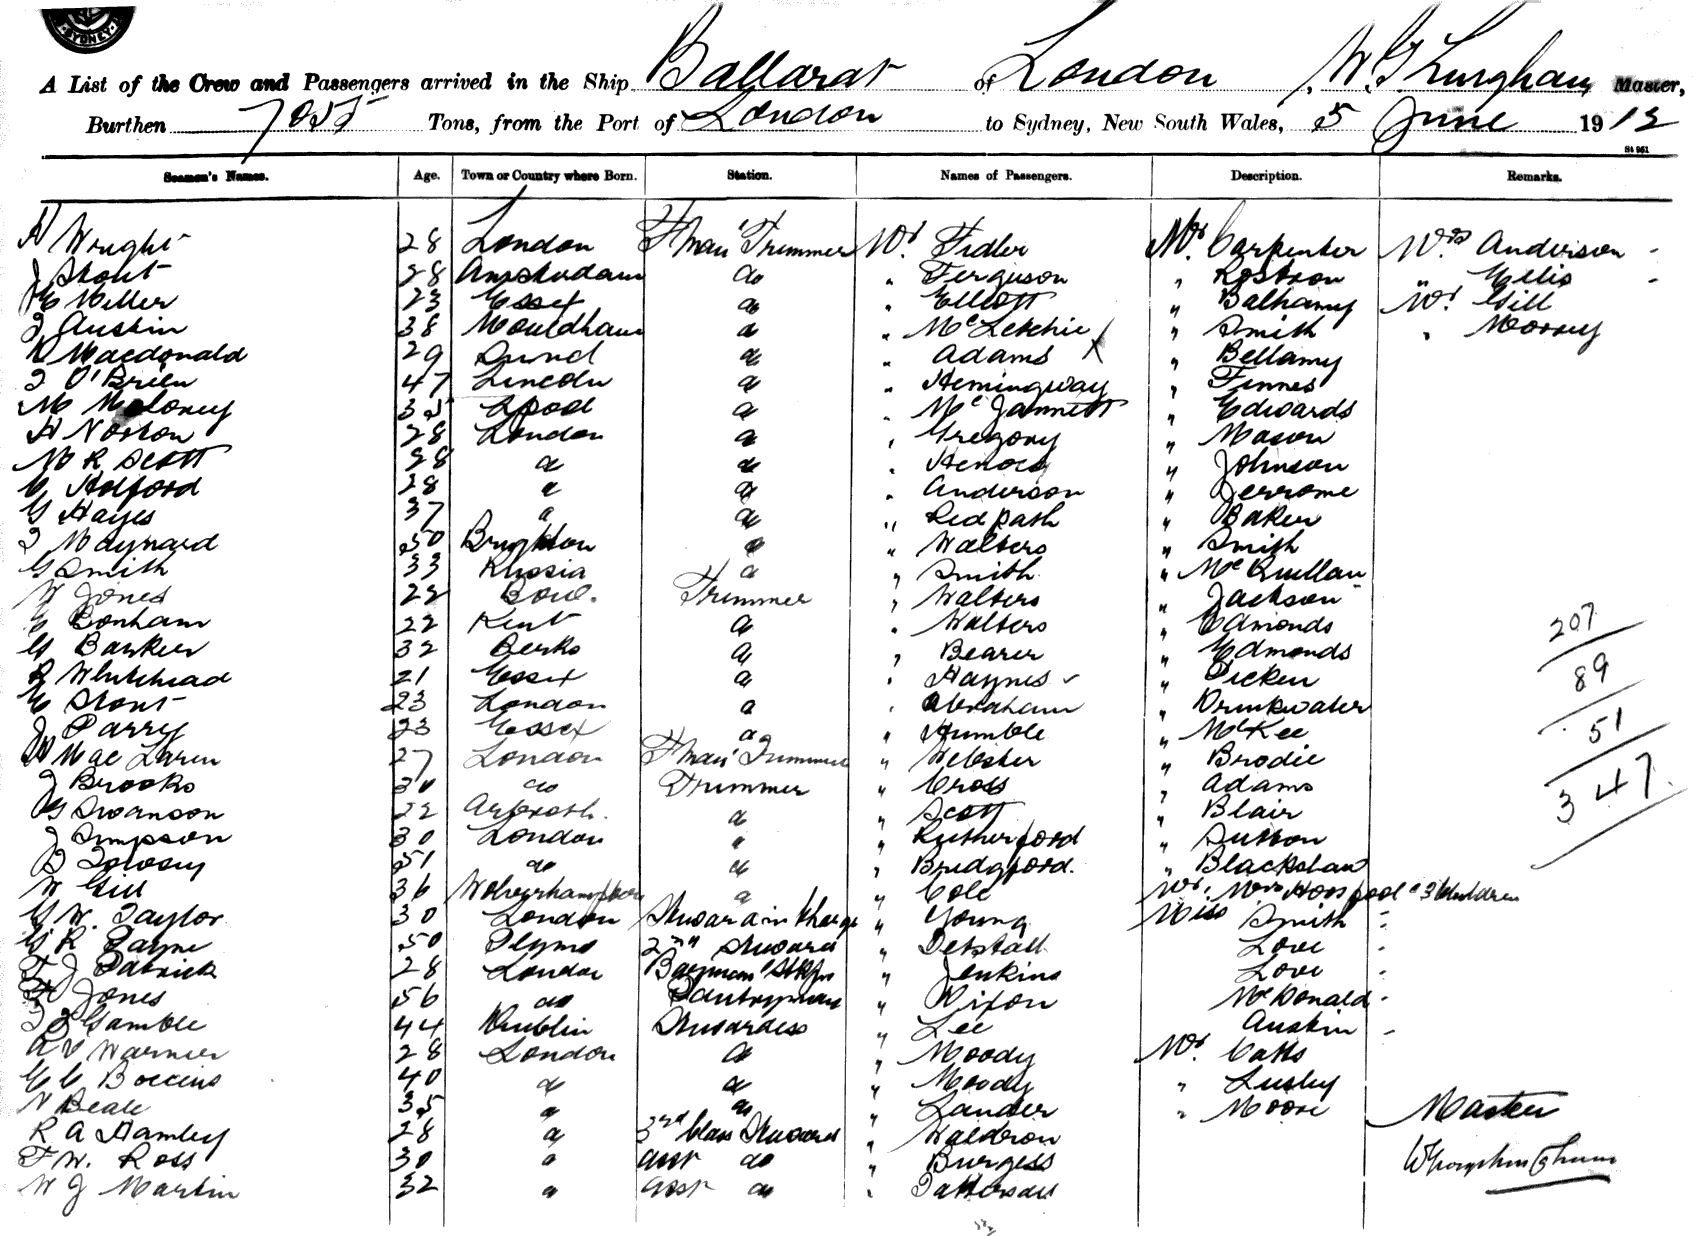 SYDNEY
A List of the Crew and Passengers arrived in the Ship Ballarat of London Master,
Burthen Tons, from the Port of London to Sydney, New South Wales, 5 June 1912
St 961
Seamen's Names. Age. Town or Country where Born. Station. Names of Passengers. Description. Remarks.
H Wright 28 London F'man Trimmer Mr. Fidler Mr. Carpenter Mrs Anderson
J Stout 28 Amsterdam do " Ferguson " " Ellis
E Miller 23 Essex do " Elliott " Mr Gill
J Austin 38 do " McLetchie " Smith "
Macdonald 29 Sund do " Adams X " Bellamy
J O'Brien 47 Lincoln do " Hemingway " Finnes
M Moloney 35 Lpool do " " Edwards
H Norton 28 London do " Gregory " Mason
M R Scott 28 do do " " Johnson
C Holford 28 do do " Anderson " Jerrome
G Hayes 37 do do " Redpath " Baker
J Maynard 50 Brighton do " Walters " Smith
G Smith 33 Russia do " Smith " McQuillan
W Jones 22 Trimmer " Walters " Jackson
E Bonham 22 Kent do " Walters " Edmonds
G Barker 32 Berks do " Bearer " Edmonds
R Whitehead 21 Essex do " Haynes " Dicken
E Stout 23 London do " Abraham " Drinkwater
J Parry 23 Essex do " Humble " McKee
H MacLaren 27 London F'man Trimmer " Webster " Brodie
J Brooks 30 do Trimmer " Cross " Adams
G Swanson 22 Arbroath. do " Scott " Blair
J Simpson 30 London " " Rutherford " Sutton
B 51 do do " Bridgford. " Blackshaw
W Gill 36 Wolverhampton do " Cole Mr. Mrs Horspool & 3 Children
G W. Taylor 30 London Steward in Charge " Young Miss Smith
G R Payne 50 Plymo 2nd Steward " Love
F J Patrick 28 London " Jenkins Love
Jones 56 do Pantryman " Dixon McDonald
Gamble 44 Dublin Stewardess " Lee Austin
A V Warner 28 London do " Moody Mr. Catts
E C 40 do do " Moody " Lusby
N Beale 35 do do " Lander " Moore
R A Hamley 28 do 3rd Class Steward " Waldron
F W. Ross 30 do Asst do " Burgess
W J Martin 32 do Asst do " Patterson
207
89
51
347.
Master